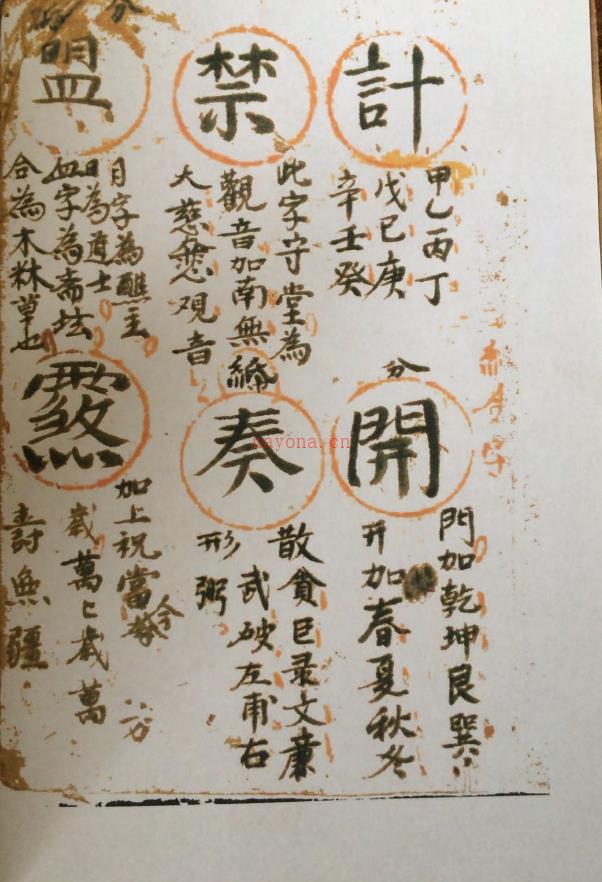 計
甲乙丙丁
戊己庚
辛壬癸
禁
此字守堂為
觀音加南無
大慈悲观音
盟
月字為醮主
日為道士
血字為斋坛
合為木林草也
分
開
門加乾坤艮巽
开加春夏秋冬
奏
散貪巨录文廉
武破左甫右
形弼
加上祝當今
歲萬〻歲萬
壽無疆
nayona.cn